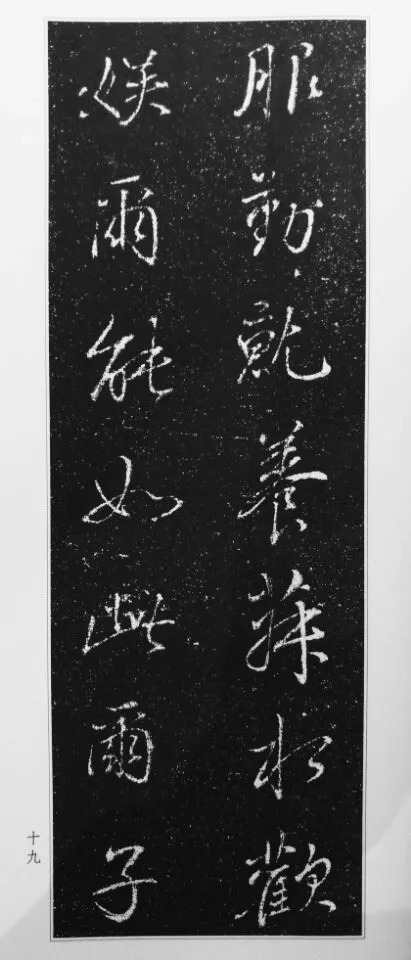 服勤就養菽水歡
娱爾能如此爾子
十九